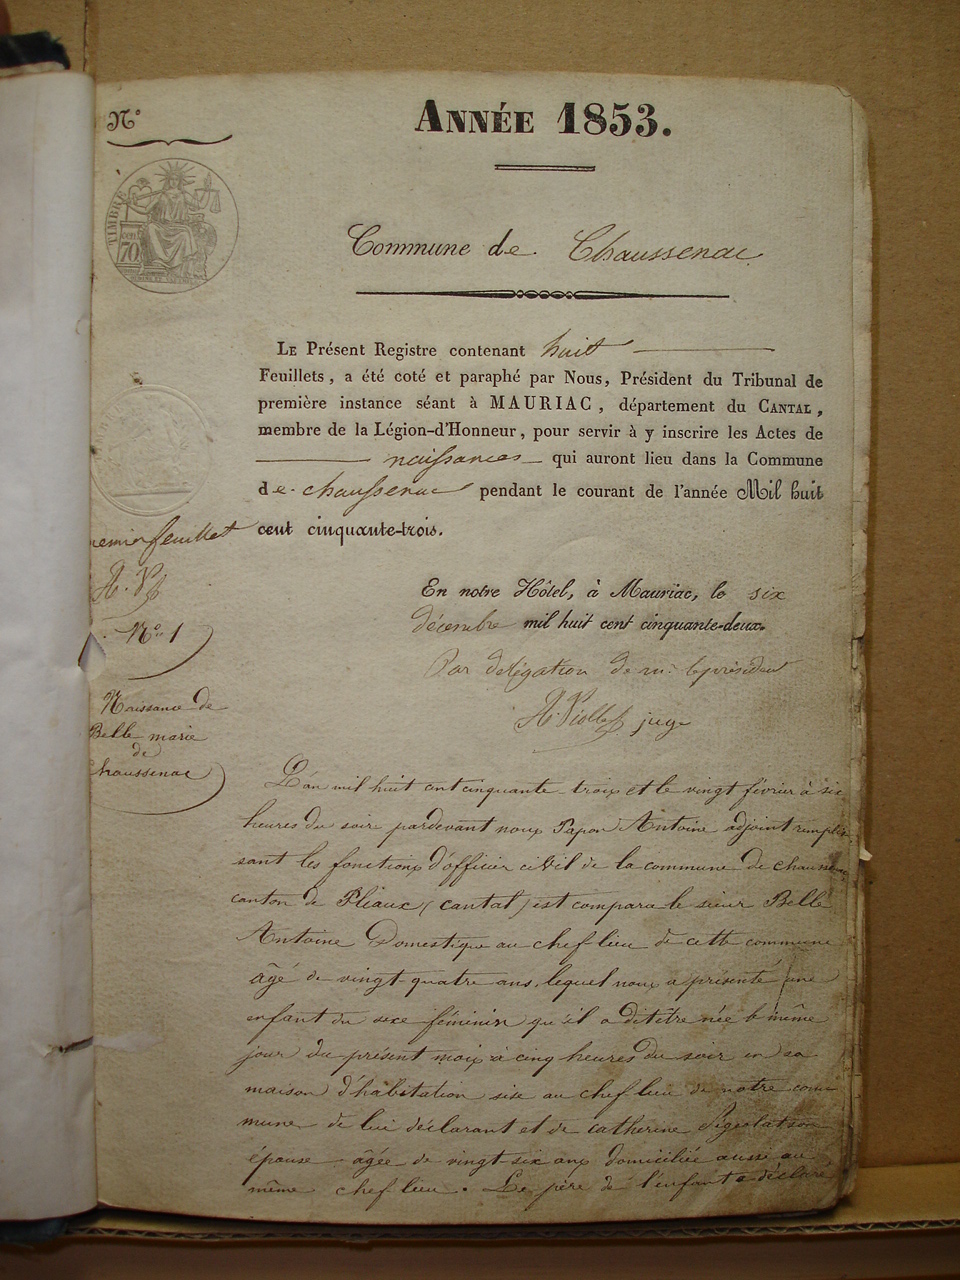 N°
ANNÉE 1853.
TIMBRE
70
Commune de Chaussenac
LE Présent Registre contenant huit
Feuillets, a été coté et paraphé par Nous, Président du Tribunal de
première instance séant à MAURIAC, département du CANTAL,
membre de la Légion-d'Honneur, pour servir à y inscrire les Actes de
naissances qui auront lieu dans la Commune
de chaussenac pendant le courant de l'année Mil huit
cent cinquante-trois.
En notre Hôtel, à Mauriac, le six
décembre mil huit cent cinquante-deux.
Par délégation de m. le président
A. Viollet juge
feuillet
N° 1
Naissance de
Belle marie
de
chaussenac
L'an mil huit cent cinquante trois et le vingt février à six
heures du soir pardevant nous Papon Antoine adjoint remplis
sant les fonctions d'officier civil de la commune de chaussenac
canton de Pleaux (cantal) est comparu le sieur Belle
Antoine Domestique au chef lieu de cette commune
âgé de vingt-quatre ans, lequel nous a présenté une
enfant du sexe féminin qu'il a dit être née le même
jour du présent mois à cinq heures du soir en sa
maison d'habitation sise au chef lieu de notre com
mune de lui déclarant et de catherine son
épouse âgée de vingt-six ans domiciliée aussi au
même chef lieu. Le père de l'enfant a déclaré